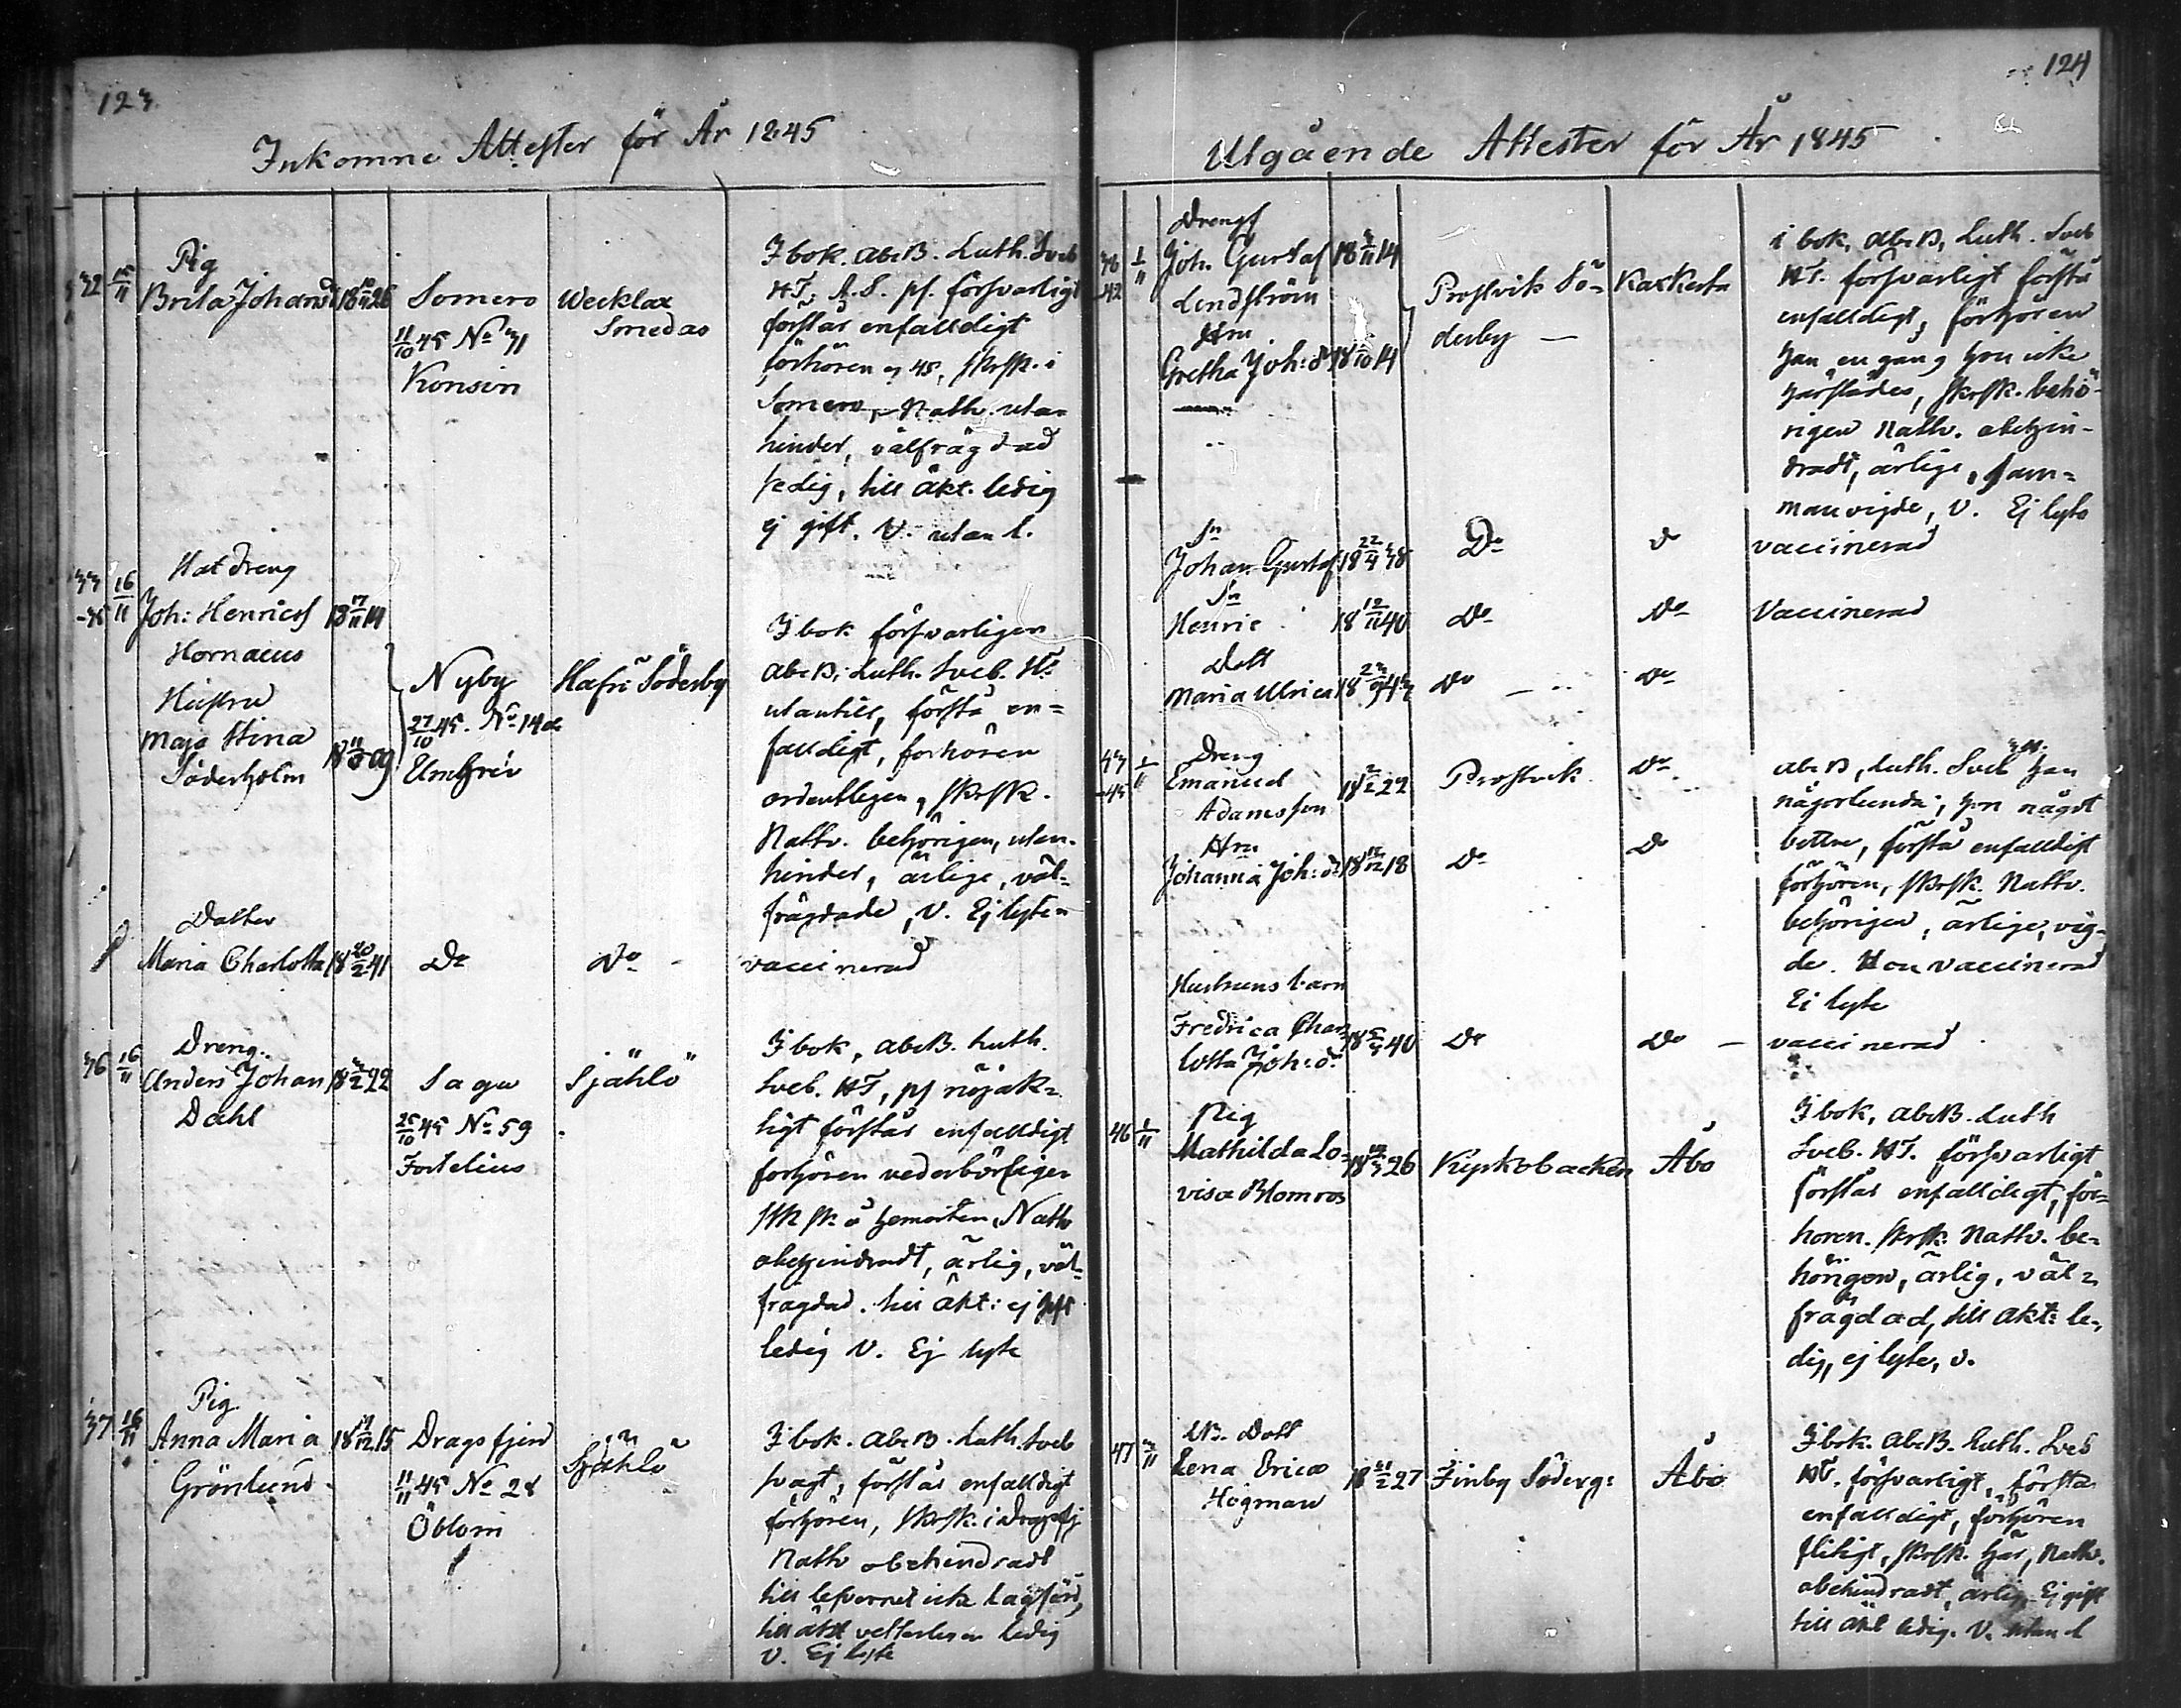 123.
Inkomne Attester för År 1845
32 15/11 Pig
Brita Johansd 18 10/11 26
Somero
11/10 45 No 31
Konsin
Wecklax
Smedas
I bok. abcB. Luth. Sveb
HT. A. S. ps. försvarligt
förstår enfalldigt
förhören 45, skrsk. i
Somero, Nattv. utan
hinder, välfrägdad
ledig, till äkt. ledig
ej gift. V. utan l.
33 16/11 Hat Dreng
-35 Joh: Henricss 18 17/11 14
Hornaeus
Hustru
Maja Stina
Söderholm 18 11/5 09
Nyby
27/10 45. No 14
Hafri Söderby
I bok försvarligen
abcB. Luth. Sveb. HT
utantill, förstå en=
falldigt, förhören
ordentligen, skrsk.
Nattv. behörigen, utan
hinder, ärlige, väl=
frägdade, V. Ej lyte
Dotter
Maria Charlotta 18 20/2 41
Do
Do
vaccinerad
36 16/11 Dreng
Anders Johan 18 3/2 22
Dahl
Sagu
25/10 45 No 59
Fortelius
Sjählö
I bok, abcB. Luth.
Sveb. HT, ps nöjak=
ligt förstår enfalldigt
förhören vederbörligen
skrsk å hemorten, Nattv
obehindradt, ärlig, väl=
frägdad. till äkt: ej gift
ledig V. Ej lyte
37 16/11 Pig
Anna Maria 18 19/12 15
Grönlund
Dragsfjerd
11/11 45 No 28
Öblom
Sjählö
I bok. abcB. Luth. Sveb
svagt, förstår enfalldigt
förhören, skrsk. i Dragsfj
Nattv obehindradt
till lefvernet icke lagförd,
till äkt vetterligen ledig
V. Ej lyte
124
Utgående Attester för År 1845
1/11
-42
Drengs
Joh. Gustaf 18 3/11 14
Lindström
Hru
Gretha Joh: dr 18 /10 14
Prostvik Sö=
derby —
Kaxkerta
i bok, abcB, Luth. Sveb
HT. försvarligt förstå
enfalldigt, förhören
han en gång hon icke
härstädes, skrsk. behö=
rigen Nattv. obehin=
dradt, ärlige, sam=
manvigde, V. Ej lyte
Sn
Johan Gustaf 18 22/4 38
Do
D
vaccinerad
Sn
Henric 18 12/11 40
Do
Do
Vaccinerad
Dott
Maria Ulrica 18 23/9 43
Do
Do
43 1/11
-45
Dreng
Emanuel 18 2/2 22
Adamsson
Prostvik
Do
abcB, Luth. Sveb han
någorlunda, hon något
Hru
Johanna Joh: d 18 15/12 18
Do
D
bettre, förstå enfalldigt
förhören, skrsk. Nattv.
behörigen, ärlige, vig=
de. Hon vaccinerad
Ej lyte
Hustruns barn
Fredrica Char
lotta Joh: d. 18 5/5 40
Do
Do —
vaccinerad
46 1/11 Pig
Mathilda Lo=
visa Blomros
26
Kyrkobacken
Åbo
I bok, abcB. Luth
Sveb. HT. försvarligt
förstår enfalldigt, för=
hören. skrsk. Nattv. be=
hörigen, ärlig, väl=
frägdad, till äkt: le=
dig, ej lyte, v.
47 3/11
Dott
Lena Erica 18 21/2 27
Högman
Finby Söderg:
Åbo
I bok. abcB. Luth. Sveb
HT. försvarligt, förstår
enfalldigt, förhören
flitigt, skrsk. här, Nattv.
obehindradt, ärlig. Ej gift
till äkt ledig. V. utan l